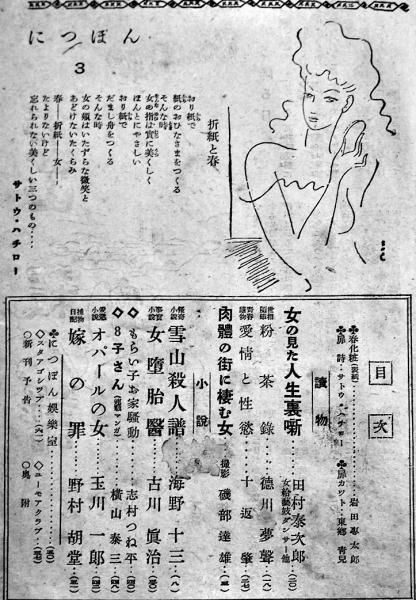 にっぽん
3
折紙と春
おり紙で
紙のおひなさまをつくる
そんな時
女の指は實に美しく
ほんとにやさしい
おり紙で
だまし舟をつくる
そんな時
女の頬はいたずらな微笑と
あどけないたくらみ
春――折紙――女――
たよりないけど
忘れられない美しい三つのもの‥‥
サトウ・ハチロー
目次
♣春化粧(表紙)‥‥‥岩田專太郎
♣扉 詩・サトウ・ハチロー ♣扉カツト・東鄕靑兒
讀物
女の見た人生裏噺 田村泰次郎
女給藝妓ダンサー他
粉茶錄‥德川夢聲
愛情と性慾‥十返肇
肉體の街に棲む女 撮影 磯部達雄
小說
雪山殺人譜‥海野十三
女墮胎醫‥古川眞治
◇もらい子お家騷動‥志村つね平
◇8子さん(連載マンガ)‥橫山泰三
オパールの女‥玉川一郎
嫁の罪‥野村胡堂
♣につぽん娛樂室
◇スタアゴシツプ‥ ◇ユーモアクラブ‥
○新刊予告 ○奧附